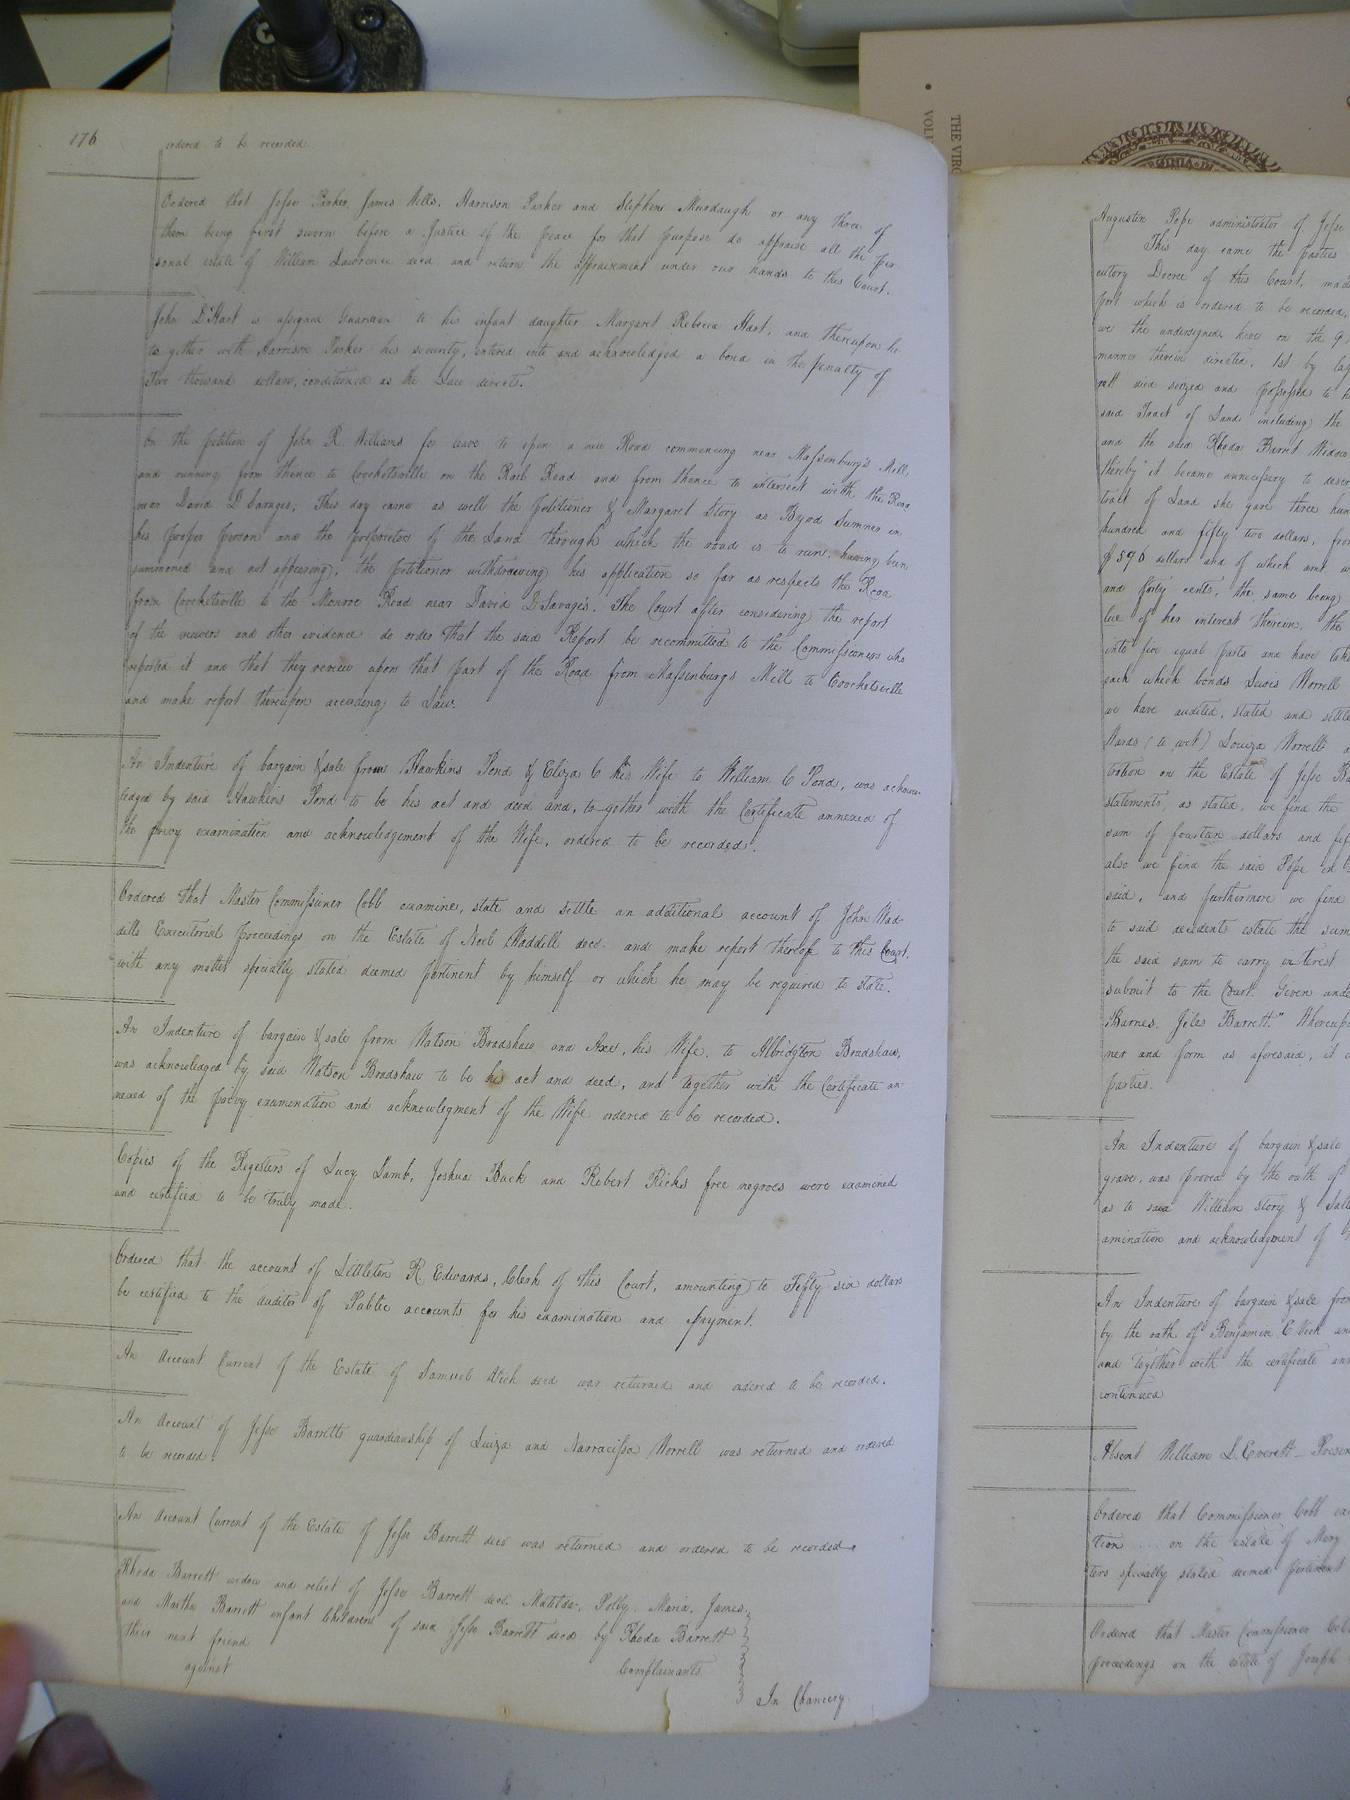 176
ordered to be recorded
Ordered that Jesse Parker, James Wells, Harrison Parker and Stephens Murdaugh or any three of
them being first sworn before a Justice of the peace for that purpose do appraise all the per
sonal estate of William Lawrence decd and return the appraisement under our hands to this Court.
John D Hart is assigned Guardian to his infant daughter Margaret Rebecca Hart, and thereupon he
to gether with Harrison Parker his security, entered into and acknowledged a bond in the penalty of
Two thousand dollars, conditioned as the Law directs.
On the petition of John R. Williams for leave to open a new Road commencing near Massenburg's Mill,
and running from thence to Crocketsville on the Rail Road and from thence to intersect with the Road
near David D Savages; This day came as well the petitioner & Margaret Story as Byrd Sumner in
his proper person and the proprietor of the Land through which the road is to run, having been
summoned and not appearing, the petitioner withdrawing his application so far as respects the Road
from Crocketsville to the Monroe Road near David D Savage's. The Court after considering the report
of the viewers and other evidence do order that the said Report be recommitted to the Commissioners who
reported it and that they review upon that part of the Road from Massenburgs Mill to Crocketsville
and make report thereupon according to Law.
An Indenture of bargain & sale from Hawkins Pond & Eliza C his Wife to William C Pond, was acknow-
ledged by said Hawkins Pond to be his act and deed and, to-gether with the Certificate annexed of
the privy examination and acknowledgement of the Wife, ordered to be recorded.
Ordered that Master Commissioner Cobb examine, state and settle an additional account of John Wad-
dills Executorial proceedings on the Estate of Noel Waddill decd. and make report thereof to this Court,
with any matter specially stated deemed pertinent by himself or which he may be required to state.
An Indenture of bargain & sale from Watson Bradshaw and his Wife, to Albridgton Bradshaw,
was acknowledged by said Watson Bradshaw to be his act and deed, and together with the Certificate an
nexed of the privy examination and acknowlegment of the Wife ordered to be recorded.
Copies of the Registers of Lucy Lamb, Joshua Buck and Robert Ricks free negroes were examined
and certified to be truly made.
Ordered that the account of Littleton R Edwards, Clerk of this Court, amounting to Fifty six dollars
be certified to the auditor of Public accounts for his examination and payment.
An Account Current of the Estate of Samuel Vick decd was returned and ordered to be recorded.
An Account of Jesse Barretts guardianship of Luiza and Narracissa Worrell was returned and ordered
to be recorded.
An Account Current of the Estate of Jesse Barrett decd was returned and ordered to be recorded.
Rhoda Barrett widow and relict of Jesse Barrett decd. Matilda, Polly, Maria, James,
and Martha Barrett infant Childrens of said Jesse Barrett decd by Rhoda Barrett
their next friend
Complainants
against
In Chancery
THE VIRG
VOL
Augustin Pope administrator of Jesse
This day came the parties
cutory Decree of this Court, made
port which is ordered to be recorded,
we the undersigned have on the
manner therein directed, 1st by lay
rett died seized and possessed to
said Tract of Land including the
and the said Rhoda Barrett Widow
thereby it became unnecessary to
tract of Land she gave three hun
hundred and fifty two dollars, from
$596 dollars and of which amt
and forty cents, the same being
lue of her interest therein, the
into five equal parts and have take
each which bonds Lewis Worrell
we have audited, stated and settle
Wards (to wit) Louiza Worrell
tration on the Estate of Jesse Ba
statements, as stated, we find the
sum of fourteen dollars and
also we find the said Pope
said, and furthermore we find
to said decedents estate the sum
the said sum to carry interest
submit to the Court. Given unde
Barnes, Jiles Barrett." Whereup
ner and form as aforesaid, it
parties.
An Indenture of bargain & sale
grave, was proved by the oath of
as to said William Story &
amination and acknowledgment of
An Indenture of bargain & sale from
by the oath of Benjamin C Vick
and together with the certificate
continued
Absent William L. Everett - Presen
Ordered that Commissioner Cobb
tion on the estate of Mary
ters specially stated deemed pertinent
Ordered that Master Commissioner Cob
proceedings on the estate of Joseph